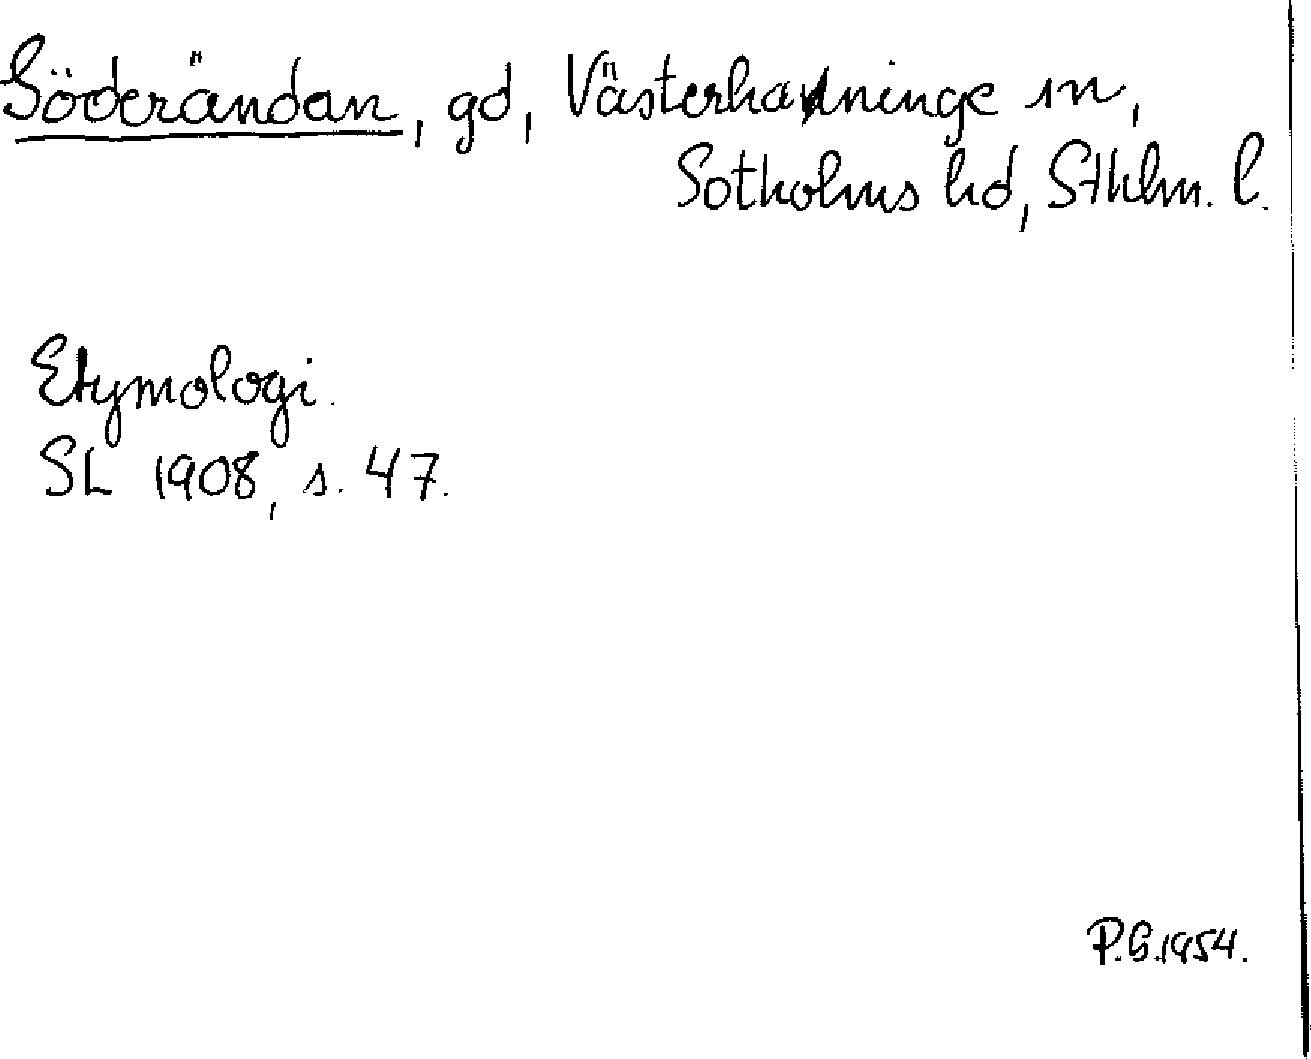 Söderändan, gd, Västerhaninge sn,
Sotholms hd, Sthlm. l.
Etymologi.
SL 1908, s. 47.
P.G.1954.